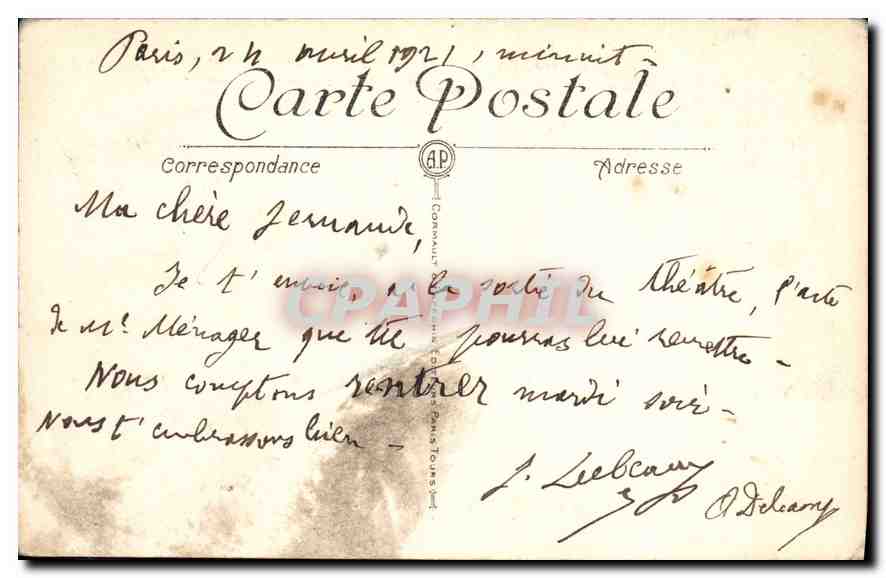 Paris, 24 avril 1921, minuit -
Carte Postale
A.P.
Correspondance
Adresse
Ma chère Fernande,
Je t'envoie, à la sortie du théâtre, l'acte
de Mr Ménager que tu pourras lui remettre -
Nous comptons rentrer mardi soir -
Nous t'embrassons bien -
CPAPHIL
EDITEURS PARIS TOURS